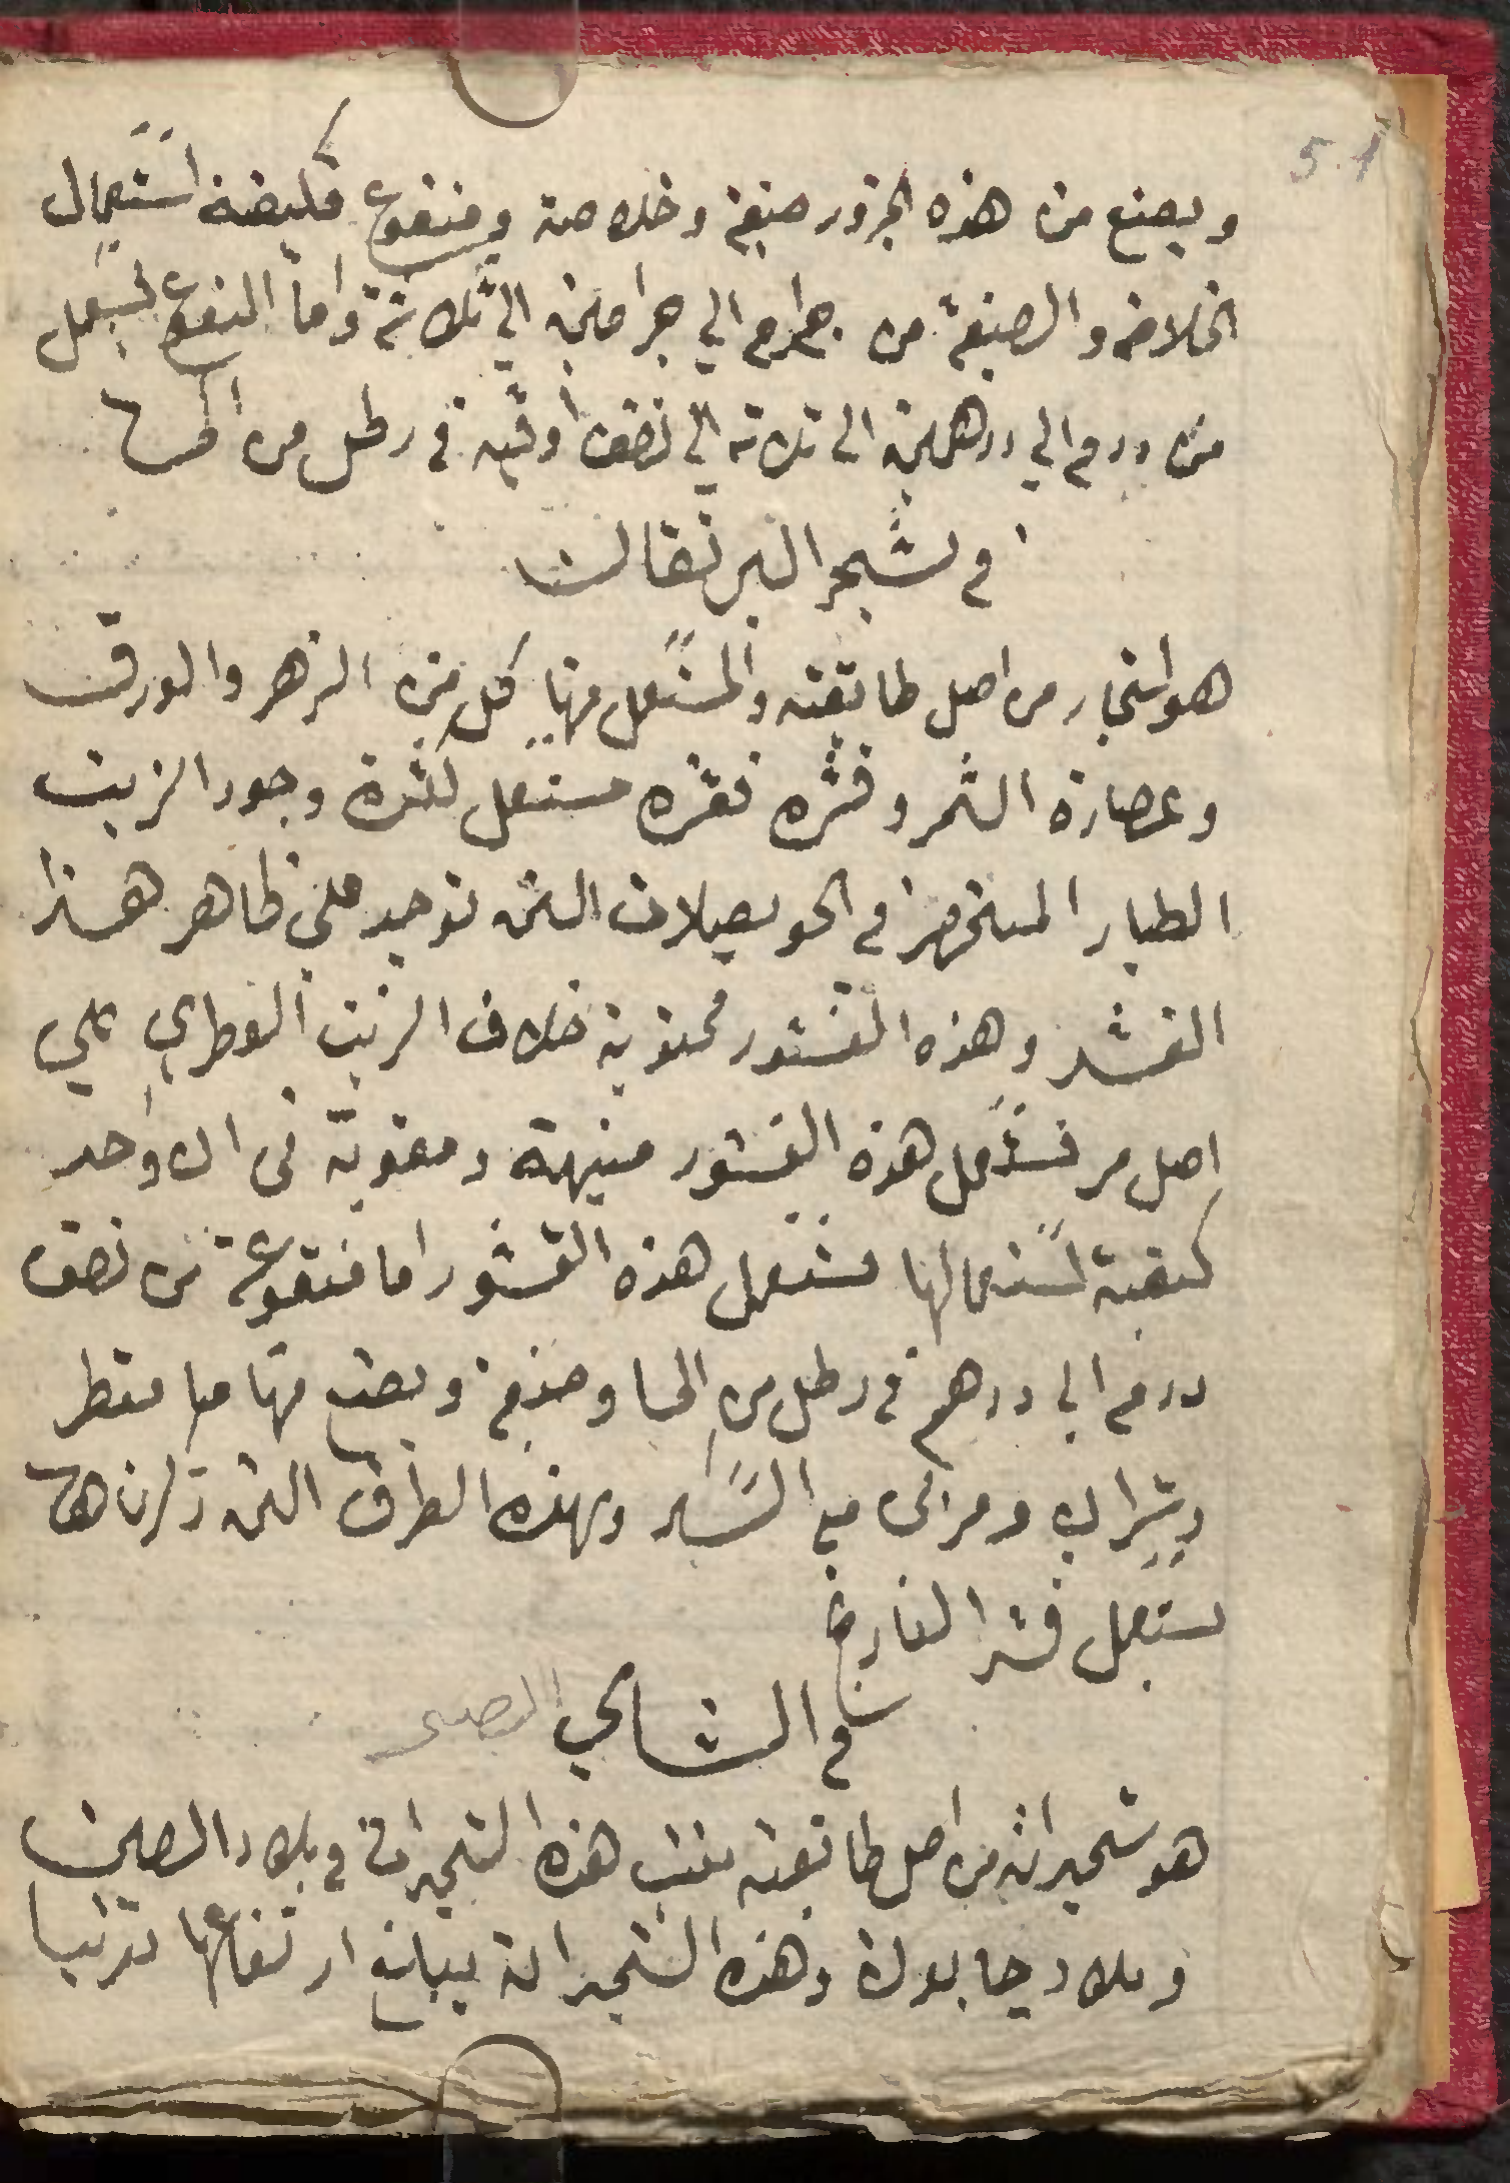 51
ويصنع من هذه الجزور صبغة وخلاصة ومنقوع فكيفية استعمال
الخلاصه والصبغة من جرام الي جرامين الي ثلاثة واما النقوع ليستعمل
من درهم الي درهمين الى ثلاثه الي نصف أوقيه في رطل من الما
في شجر البرتقال
هو اشجار من اصل طائفته والمستعمل منها كل من الزهر والورق
وعصارة الثمر وقشره فقشره مستعمل لكثرة وجود الزيت
الطيار المنحصر في الحويصيلات التى توجد على ظاهر هذا
القشر وهذه القشور محتوية خلاف الزيت العطري على
اصل مر فتستعمل هذه القشور منبهة ومقوية فى ان واحد
كيفية استعمالها تستعمل هذه القشور اما منقوعة من نصف
درهم الي درهم في رطل من الما وصبغة ويصنع منها ما مقطر
وشراب ومربى مع السكر وبهذه الطرق التى ذكرناها
يستعمل قشر النارنج
في الشاي الصينى
هو شجيرات من اصل طائفته تنبت هذه الشجيرات في بلاد الصين
وبلاد جابونة وهذه الشجيرات يبلغ ارتفاعها تقريبا